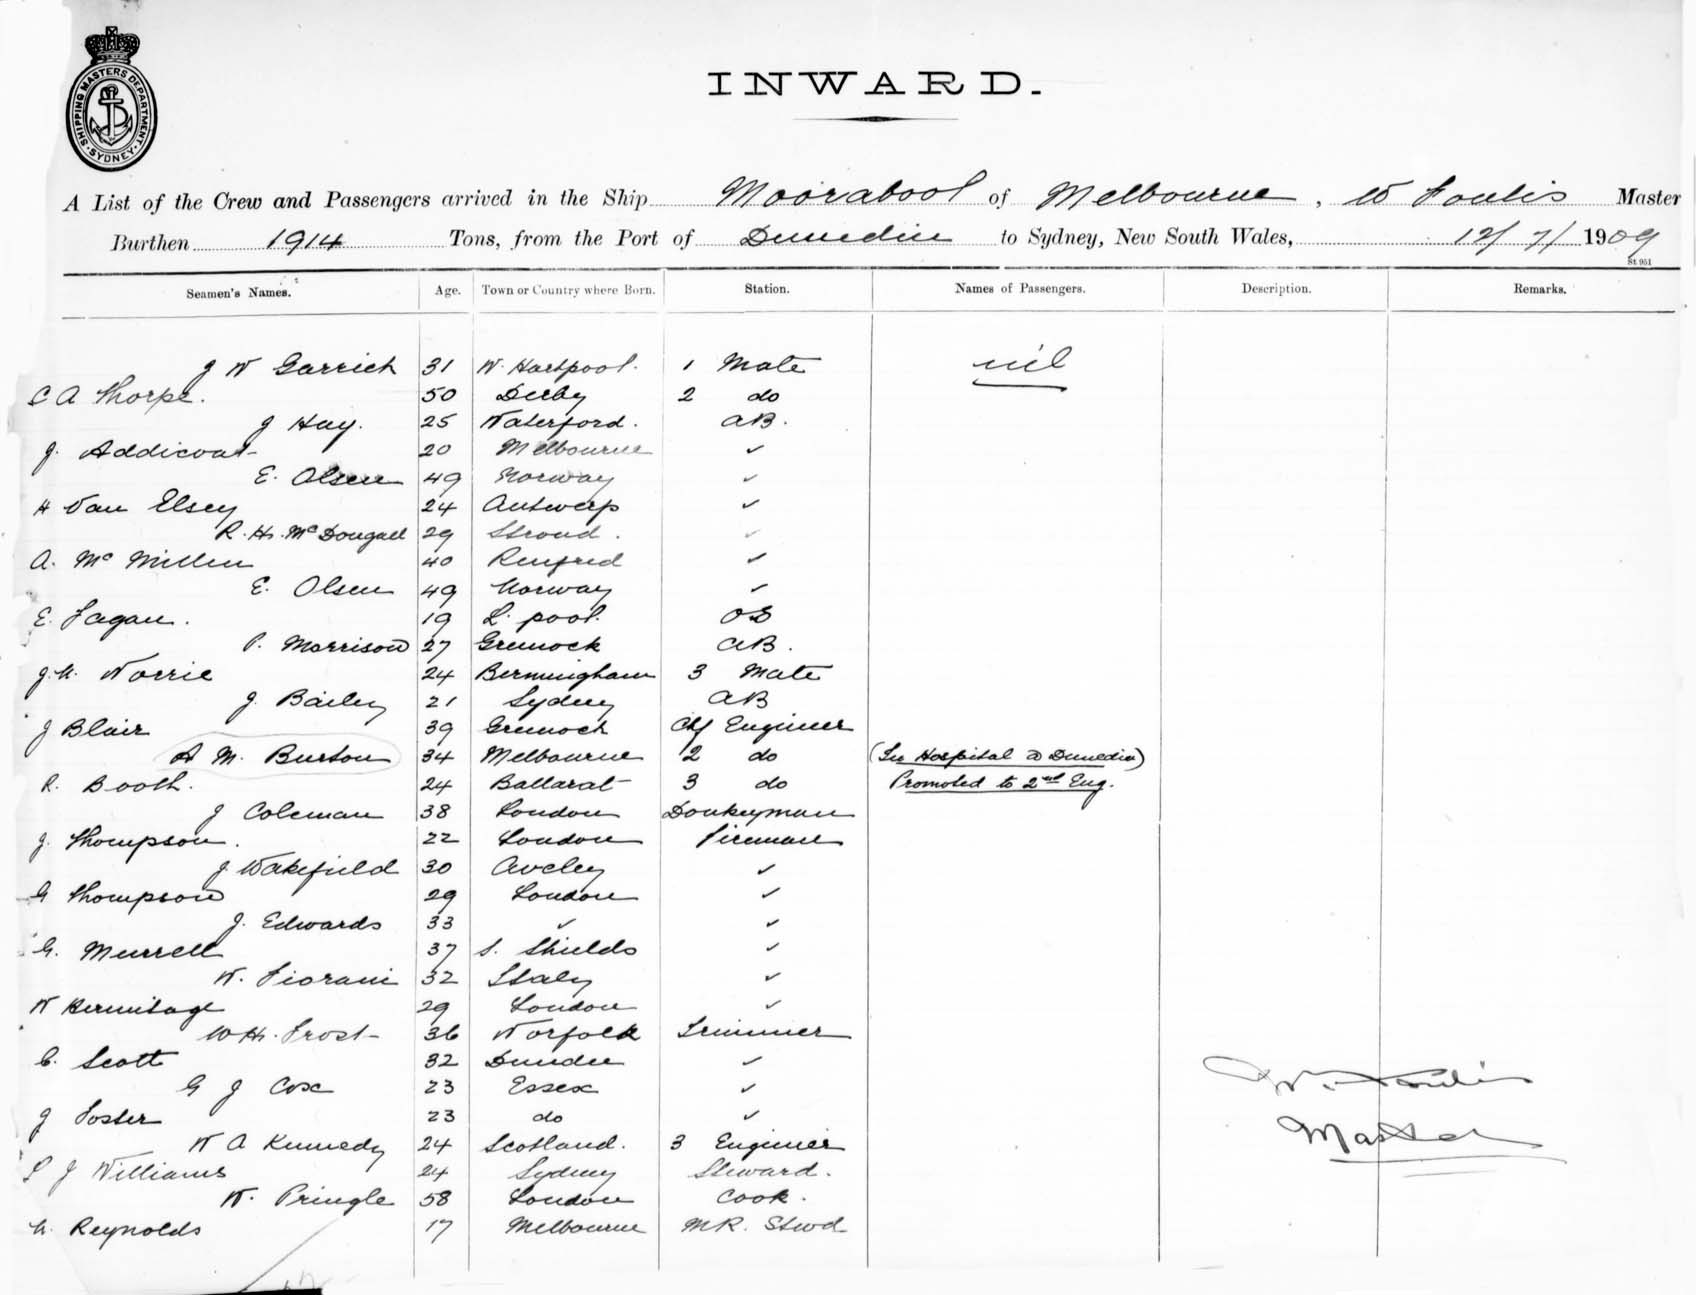 SHIPPING MASTERS DEPARTMENT · SYDNEY ·
INWARD.
A List of the Crew and Passengers arrived in the Ship Moorabool of Melbourne, W Foulis Master
Burthen 1914 Tons, from the Port of Dunedin to Sydney, New South Wales, 12/7/1909
St 951
Seamen's Names. Age. Town or Country where Born. Station. Names of Passengers. Description. Remarks.
J W Garrick 31 W. Hartpool. 1 Mate nil
C A Thorpe. 50 Derby 2 do
J Hay. 25 Waterford. AB.
J. Addicoat 20 Melbourne ✓
E. Olsen 49 Norway ✓
H Van Elsey 24 Antwerp ✓
R. H. McDougall 29 Stroud. ✓
A. McMillen 40 Renfred ✓
E. Olsen 49 Norway ✓
E. Fagan. 19 L. pool. OS
P. Morrison 27 Greenock AB.
Norrie 24 Bermingham 3 Mate
J. Bailey 21 Sydney AB
J Blair 39 Greenock Chf Engineer
A M. Burton 34 Melbourne 2 do (In Hospital @ Dunedin)
R. Booth. 24 Ballarat 3 do Promoted to 2nd Eng.
J Coleman 38 London Donkeyman
J. Thompson. 22 London Fireman
J Wakefield 30 Aveley ✓
G Thompson 29 London ✓
J. Edwards 33 ✓ ✓
G. Murrell 37 S. Shields ✓
W. Fiorani 32 Italy ✓
W Hermitage 29 London ✓
W H. Frost 36 Norfolk Trimmer
C. Scott 32 Dundee ✓
G J Cox 23 Essex ✓
J Foster 23 do ✓
W A Kennedy 24 Scotland. 3 Engineer
J Williams 24 Sydney Steward.
W. Pringle 58 London Cook.
Reynolds 17 Melbourne MR. Stwd
W. Foulis
Master